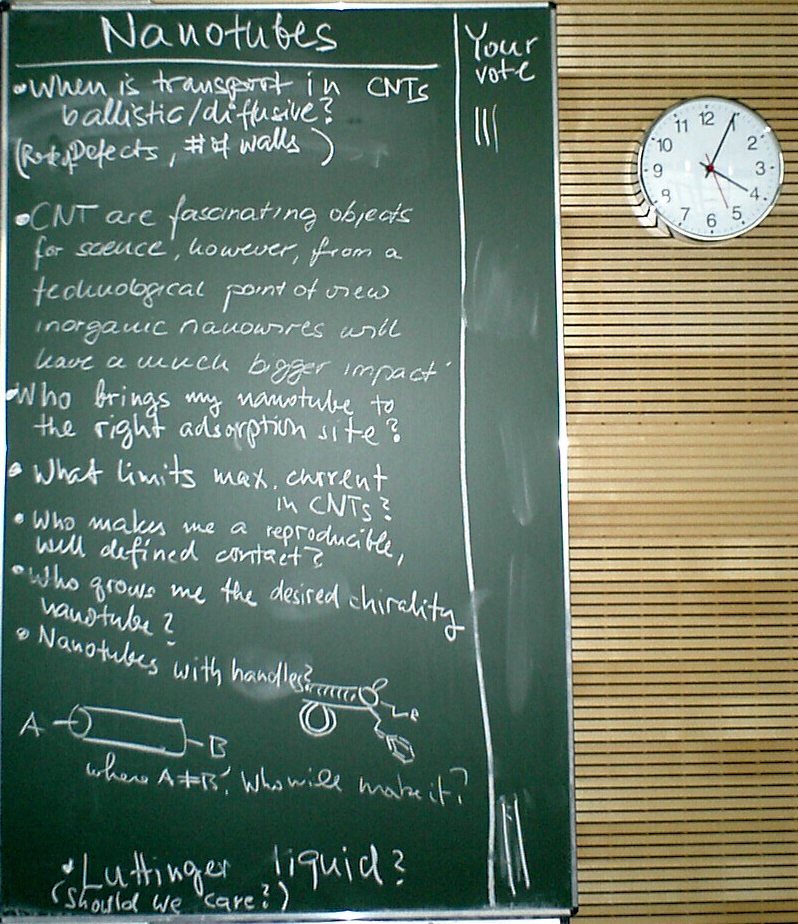 Nanotubes
Your
vote
• When is transport in CNTs
ballistic/diffusive?
Defects, # of walls )
|||
• CNT are fascinating objects
for science, however, from a
technological point of view
inorganic nanowires will
have a much bigger impact
• Who brings my nanotube to
the right adsorption site?
• What limits max. current
in CNTs?
• Who makes me a reproducible,
well defined contact?
• Who grows me the desired chirality
nanotube?
• Nanotubes with handles?
A
B
where A ≠ B. Who will make it?
• Luttinger liquid?
(should we care?)
|||
12
1
2
3
4
5
6
7
8
9
10
11